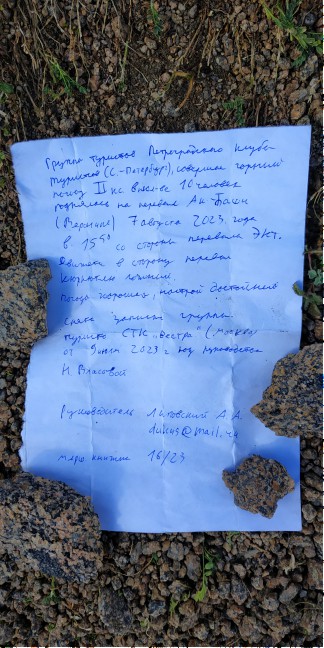 Группа туристов Петроградского клуба
туристов (С.-Петербург), совершая горный
поход II кс в кол-ве 10 человек
поднялась на перевал Ак-
7 августа 2023 года
в 15 со стороны перевала
Движемся в сторону перевала
Погода хорошая, настрой достойный
Снята записка группы
туристов СТК "Вестра" (Москва)
от 9 2023 г под руководством
Н Власовой
Руководитель А. А.
@mail.ru
марш. книжка 16/23